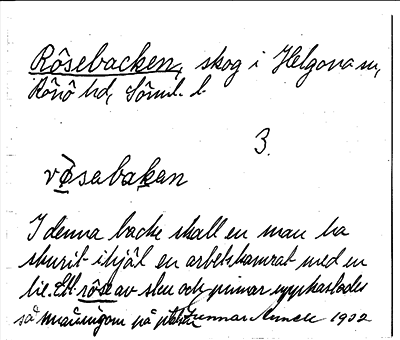 Rösebacken, skog i Helgona sn,
Rönö hd, Söml. l
3.
rösabakan
I denna backe skall en man ha
skurit ihjäl en arbetskamrat med en
lie. Ett röse av sten och pinnar uppkastades
så småningom på platsen Gunnar 1932